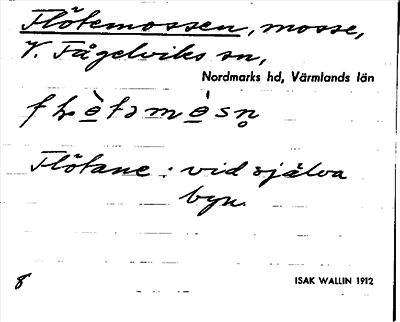 Flötemossen, mosse,
V. Fågelviks sn,
Nordmarks hd, Värmlands län
Flötane : vid själva
byn.
8
ISAK WALLIN 1912